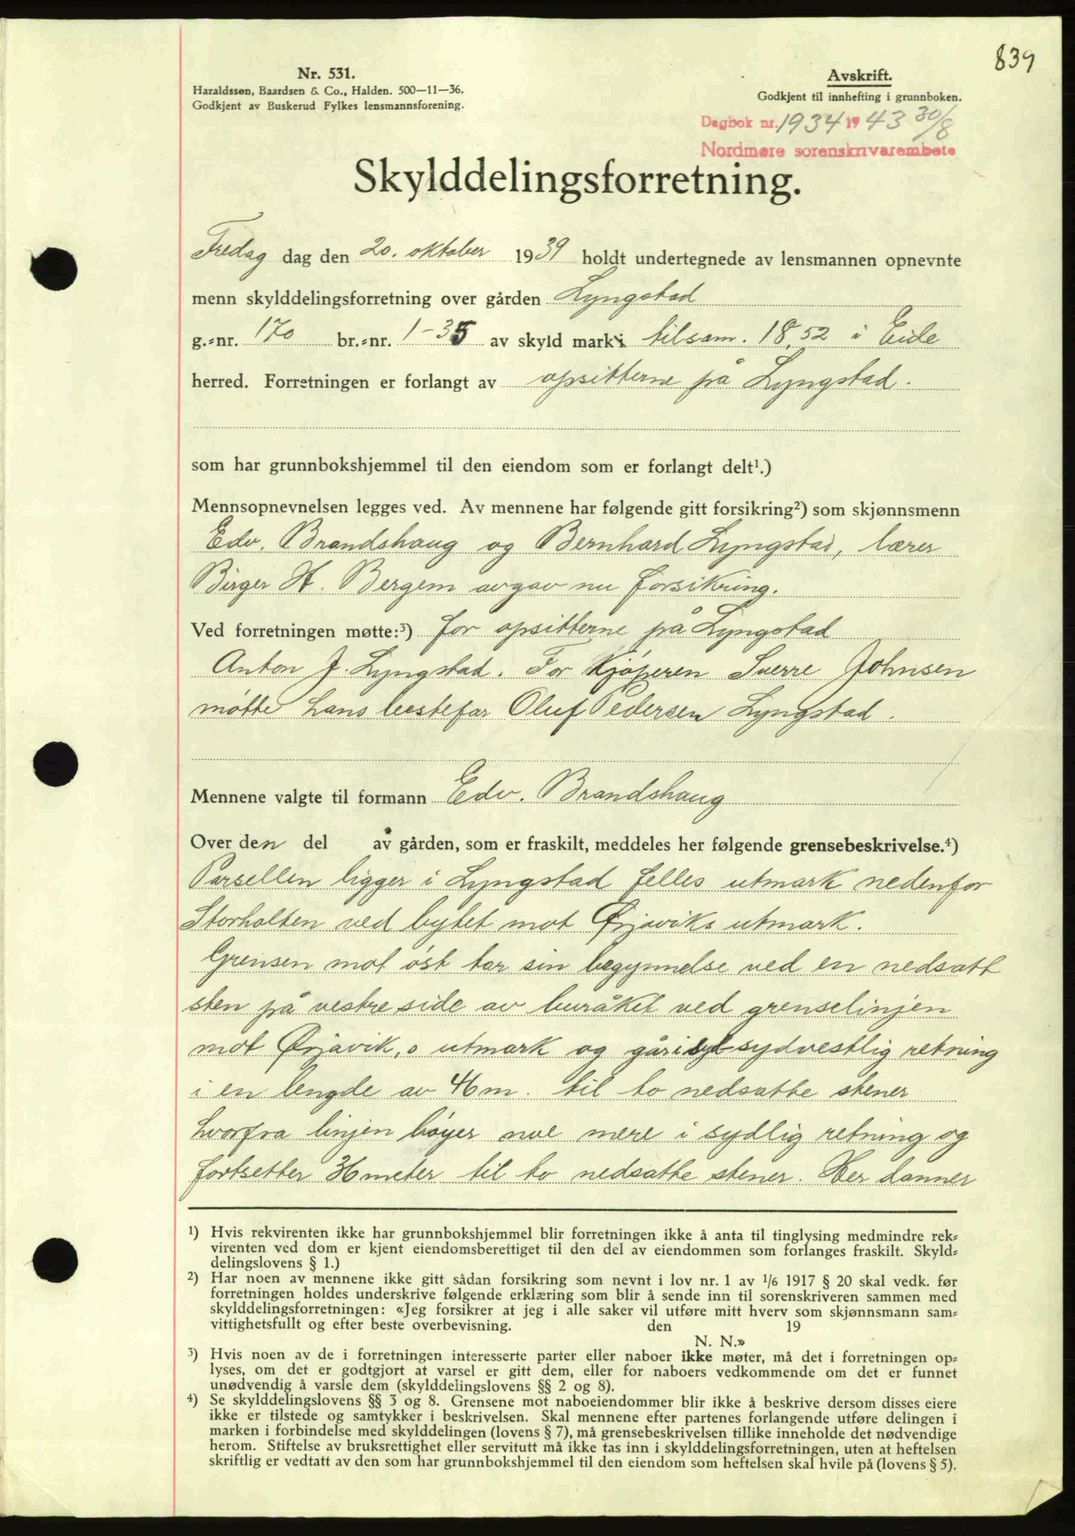 839
Nr. 531.
Haraldssøn, Baardsen & Co., Halden. 500—11—36.
Godkjent av Buskerud Fylkes lensmannsforening.
Avskrift.
Godkjent til innhefting i grunnboken.
Dagbok nr. 1934 1943 30/8
Nordmøre sorenskriverembete
Skylddelingsforretning.
Fredag dag den 20. oktober 1939 holdt undertegnede av lensmannen opnevnte
menn skylddelingsforretning over gården Lyngstad
g.-nr. 170 br.-nr. 1-35 av skyld mark tilsam. 18,52 i Eide
herred. Forretningen er forlangt av opsitterne på Lyngstad.
som har grunnbokshjemmel til den eiendom som er forlangt delt¹.)
Mennsopnevnelsen legges ved. Av mennene har følgende gitt forsikring²) som skjønnsmenn
Edv. Brandshaug og Bernhard Lyngstad, lærer
Birger H. Bergem avgav nu forsikring.
Ved forretningen møtte:³) for opsitterne på Lyngstad
Anton J. Lyngstad. For kjøperen Sverre Johnsen
møtte hans bestefar Oluf Pedersen Lyngstad.
Mennene valgte til formann Edv. Brandshaug
Over den del av gården, som er fraskilt, meddeles her følgende grensebeskrivelse.⁴)
Parsellen ligger i Lyngstad felles utmark nedenfor
Storholten ved bytet mot Ørjaviks utmark.
Grensen mot øst tar sin begynnelse ved en nedsatt
sten på vestre side av buråket ved grenselinjen
mot Ørjavik,s utmark og går i sydvestlig retning
i en lengde av 46 m. til to nedsatte stener
hvorfra linjen bøyer noe mere i sydlig retning og
fortsetter 36 meter til to nedsatte stener. Her danner
¹) Hvis rekvirenten ikke har grunnbokshjemmel blir forretningen ikke å anta til tinglysing medmindre rek-
virenten ved dom er kjent eiendomsberettiget til den del av eiendommen som forlanges fraskilt. Skyld-
delingslovens § 1.)
²) Har noen av mennene ikke gitt sådan forsikring som nevnt i lov nr. 1 av 1/6 1917 § 20 skal vedk. før
forretningen holdes underskrive følgende erklæring som blir å sende inn til sorenskriveren sammen med
skylddelingsforretningen: «Jeg forsikrer at jeg i alle saker vil utføre mitt hverv som skjønnsmann sam-
vittighetsfullt og efter beste overbevisning. den 19
N. N.»
³) Hvis noen av de i forretningen interesserte parter eller naboer ikke møter, må det i forretningen op-
lyses, om det er godtgjort at varsel er gitt dem, eller for naboers vedkommende om det er funnet
unødvendig å varsle dem (skylddelingslovens §§ 2 og 8).
⁴) Se skylddelingslovens §§ 3 og 8. Grensene mot naboeiendommer blir ikke å beskrive dersom disses eiere
ikke er tilstede og samtykker i beskrivelsen. Skal mennene efter partenes forlangende utføre delingen i
marken i forbindelse med skylddelingen (lovens § 7), må grensebeskrivelsen tillike inneholde det nødvendige
herom. Stiftelse av bruksrettighet eller servitutt må ikke tas inn i skylddelingsforretningen, uten at heftelsen
skriftlig er vedtatt av den som har grunnbokshjemmel til den eiendom som heftelsen skal hvile på (lovens § 5).